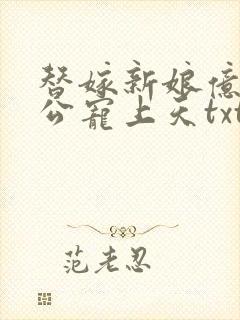 替嫁新娘億
公寵上天txt
范老忍